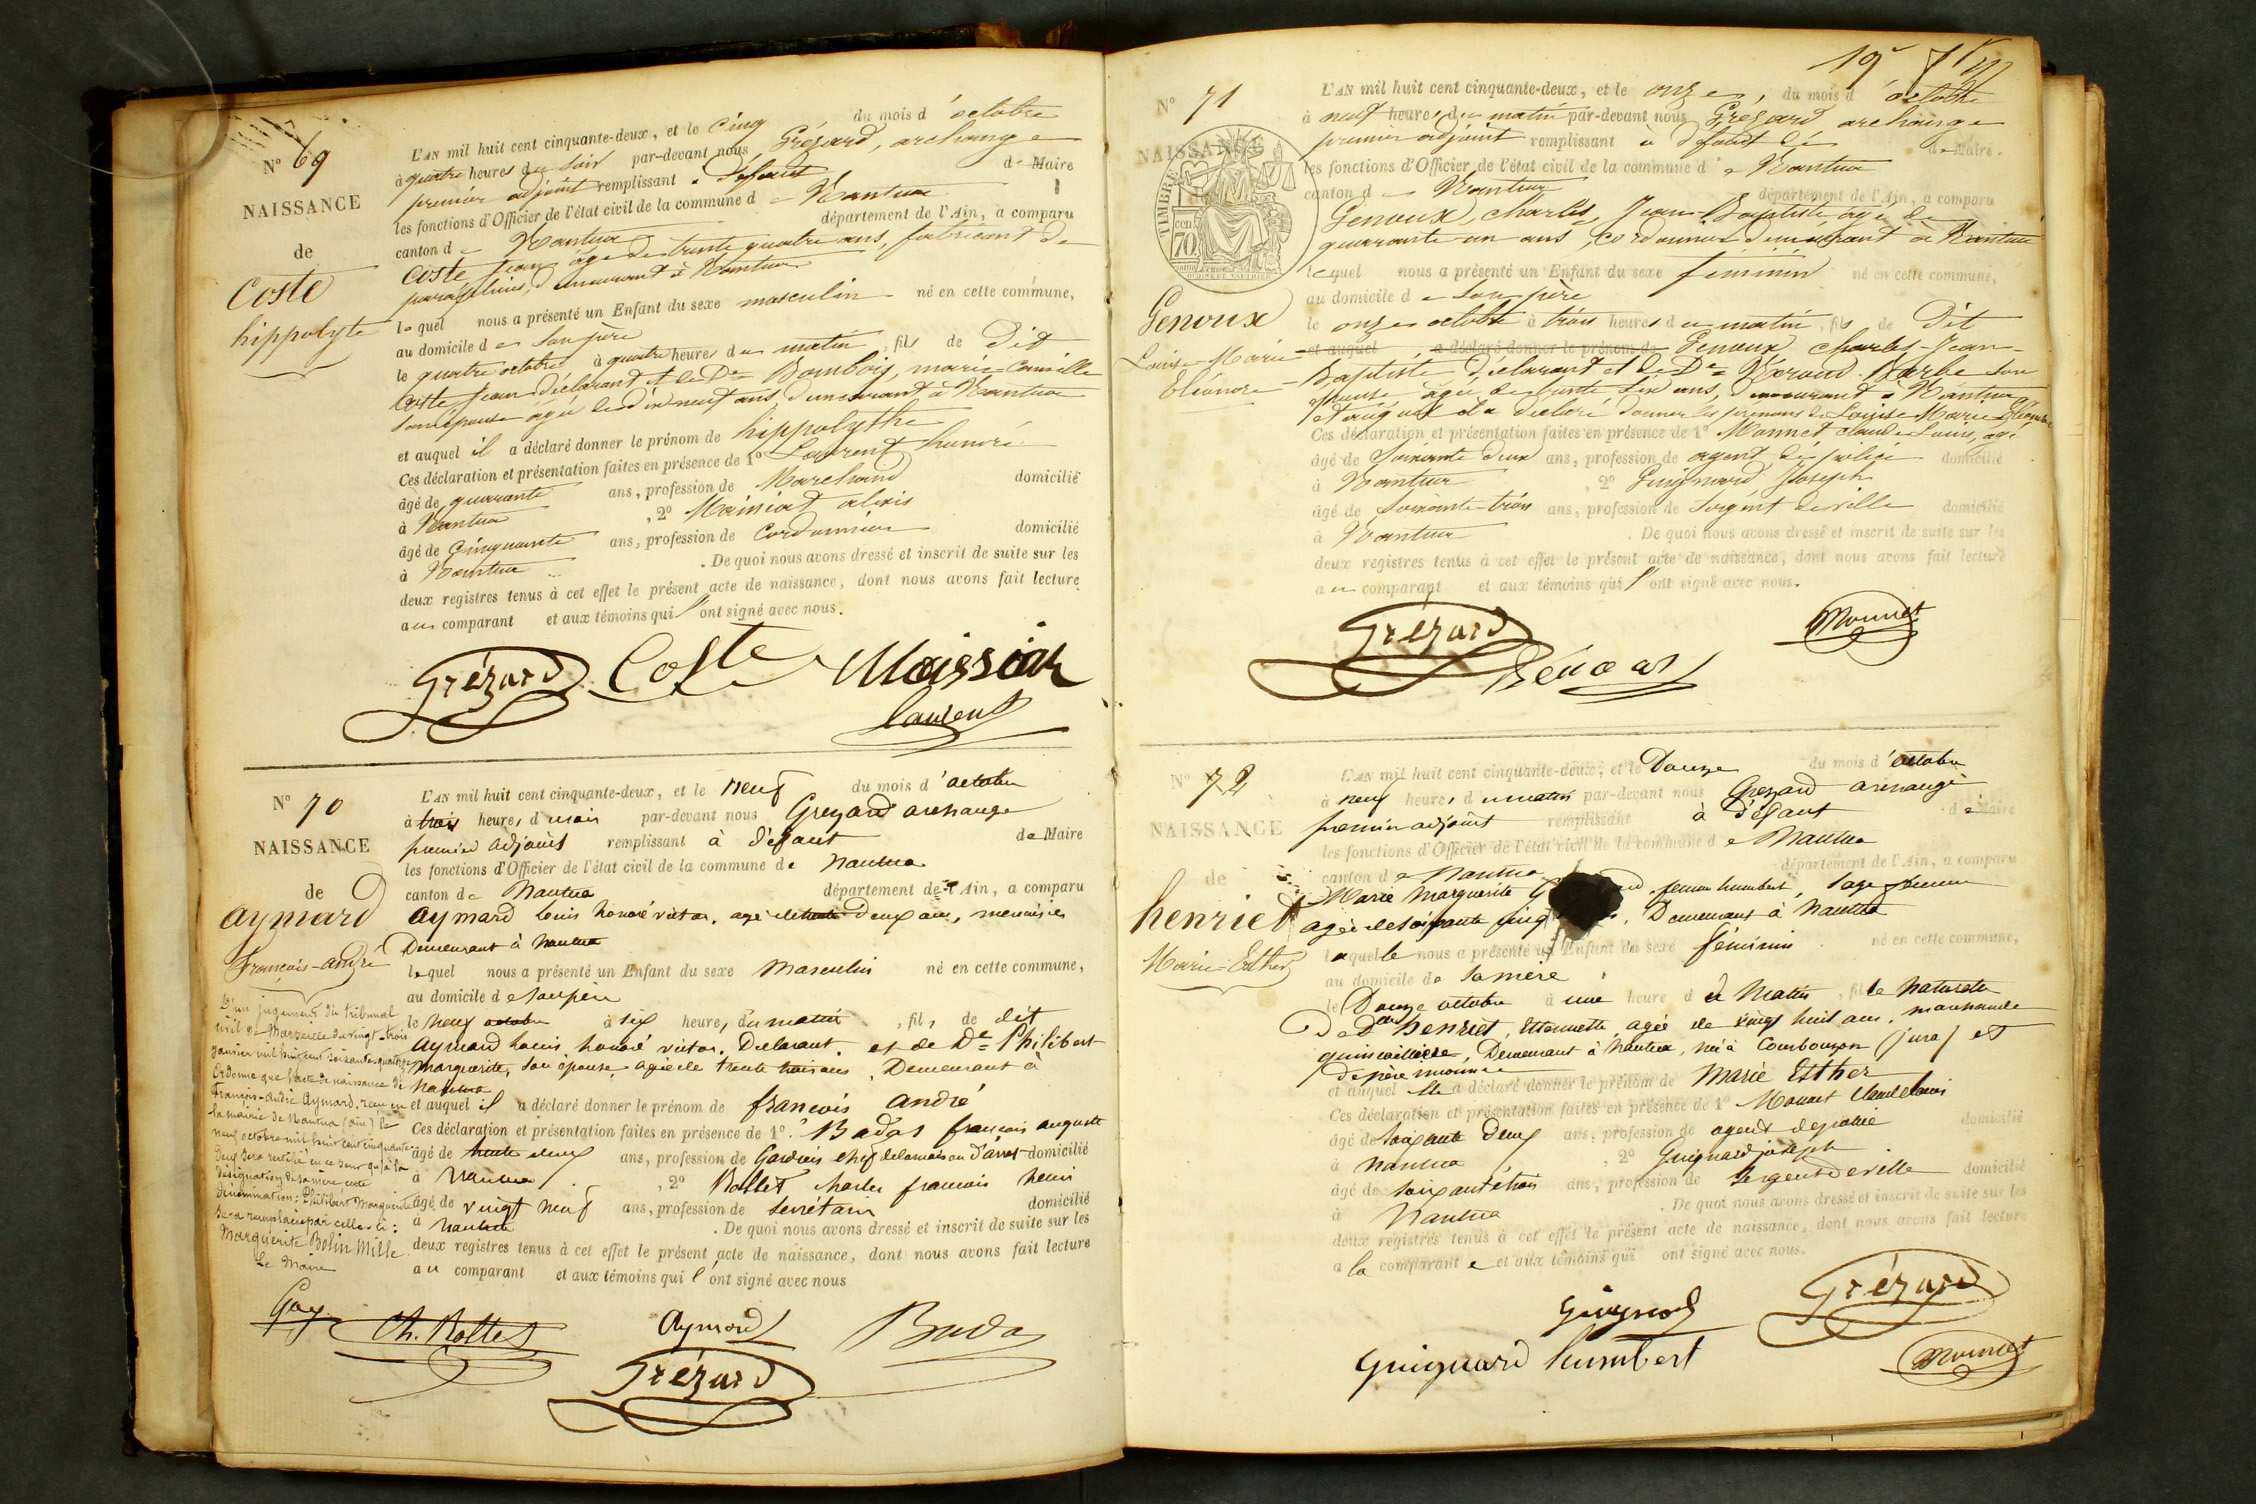 N° 69
NAISSANCE
de
Coste
hippolyte
L'AN mil huit cent cinquante-deux, et le cinq du mois d'octobre
à quatre heures du soir par-devant nous Grézard, archange
premier adjoint remplissant à défaut de Maire
les fonctions d'Officier de l'état civil de la commune de Nantua
canton de Nantua département de l'Ain, a comparu
Coste Jean âgé de trente quatre ans, fabricant de
parapluies, demeurant à Nantua
lequel nous a présenté un Enfant du sexe masculin né en cette commune,
au domicile de son père
le quatre octobre à quatre heures du matin, fils de dit
Coste Jean déclarant et de De Bombois, marie-Camille
son épouse agée de dix neuf ans demeurant à Nantua
et auquel il a déclaré donner le prénom de hippolythe
Ces déclaration et présentation faites en présence de 1° Laurent honoré
âgé de quarante ans, profession de Marchand domicilié
à Nantua, 2° Maissiat alexis
âgé de Cinquante ans, profession de Cordonnier domicilié
à Nantua. De quoi nous avons dressé et inscrit de suite sur les
deux registres tenus à cet effet le présent acte de naissance, dont nous avons fait lecture
au comparant et aux témoins qui l'ont signé avec nous.
Grézard Coste Maissiat
Laurent
N° 70
NAISSANCE
de
aymard
François-André
L'AN mil huit cent cinquante-deux, et le neuf du mois d'octobre
à trois heures du soir par-devant nous Grezard archange
premier adjoint remplissant à défaut de Maire
les fonctions d'Officier de l'état civil de la commune de Nantua
canton de Nantua département de l'Ain, a comparu
aymard louis honoré victor, agé de trente Deux ans, menuisier
Demeurant à Nantua
lequel nous a présenté un Enfant du sexe Masculin né en cette commune,
au domicile de son père
le neuf octobre à six heures du matin, fils de dit
aymard louis honoré victor, Déclarant, et de De Philibert
Marguerite, son épouse agée de trente trois ans, Demeurant à
Nantua
et auquel il a déclaré donner le prénom de françois andré
Ces déclaration et présentation faites en présence de 1° Badas françois auguste
âgé de trente deux ans, profession de Gardien chef de la maison d'arret domicilié
à Nantua, 2° Rollet charles françois henri
âgé de vingt neuf ans, profession de secrétaire domicilié
à Nantua. De quoi nous avons dressé et inscrit de suite sur les
deux registres tenus à cet effet le présent acte de naissance, dont nous avons fait lecture
au comparant et aux témoins qui l'ont signé avec nous
D'un jugement du tribunal
civil de Marseille du vingt-trois
janvier mil huit cent soixante quatorze
Ordonne que l'acte de naissance de
François-André Aymard, reçu en
la mairie de Nantua (ain) le
neuf octobre mil huit cent cinquante
deux sera rectifié en ce sens qu'à la
désignation de sa mère cette
dénomination: Philibert Marguerite
sera remplacée par celle-ci:
Marguerite Bolin Mille
Le Maire
Gay
Ch. Rollet Aymard Bada
Grézard
19
N° 71
NAISSANCE
TIMBRE
70
Genoux
Louise-Marie
Eléonore
L'AN mil huit cent cinquante-deux, et le onze, du mois d'octobre
à neuf heures du matin par-devant nous Grézard archange
premier adjoint remplissant à défaut de Maire.
les fonctions d'Officier de l'état civil de la commune de Nantua
canton de Nantua département de l'Ain, a comparu
Genoux, Charles, Jean-Baptiste, âgé de
quarante un ans, cordonnier demeurant à Nantua
lequel nous a présenté un Enfant du sexe féminin né en cette commune,
au domicile de son père
le onze octobre à trois heures du matin, fils de dit
et auquel a déclaré donner le prénom de Genoux Charles-Jean-
Baptiste, déclarant et de De Barbe son
épouse agée de trente six ans, demeurant à Nantua
et auquel il a déclaré donner les prénoms de Louise Marie Eléonore
Ces déclaration et présentation faites en présence de 1° Monnet claude Louis, agé
âgé de soixante deux ans, profession de agent de police domicilié
à Nantua, 2° Guignard Joseph
âgé de soixante-trois ans, profession de Sergent de ville domicilié
à Nantua. De quoi nous avons dressé et inscrit de suite sur les
deux registres tenus à cet effet le présent acte de naissance, dont nous avons fait lecture
au comparant et aux témoins qui l'ont signé avec nous.
Grézard Monnet
Genoux
N° 72
NAISSANCE
de
henriet
Marie-Esther
L'AN mil huit cent cinquante-deux, et le Douze du mois d'octobre
à neuf heures du matin par-devant nous Grezard archange
premier adjoint remplissant à défaut de Maire
les fonctions d'Officier de l'état civil de la commune de Nantua
canton de Nantua département de l'Ain, a comparu
Marie Marguerite femme humbert, sage femme
agée de soixante cinq Demeurant à Nantua
laquelle nous a présenté un Enfant du sexe féminin né en cette commune,
au domicile de sa mère
le Douze octobre à une heure du Matin, fille naturelle
De Dlle henriet, Ettennette, agée de vingt huit ans, marchande
quincaillière, Demeurant à Nantua, née à Courbouzon (jura) et
de père inconnu
et auquel elle a déclaré donner le prénom de Marie Esther
Ces déclaration et présentation faites en présence de 1° Monnet Claude louis
âgé de soixante Deux ans, profession de agent de police domicilié
à Nantua, 2° Guignard joseph
âgé de soixante trois ans, profession de Sergent de ville domicilié
à Nantua. De quoi nous avons dressé et inscrit de suite sur les
deux registres tenus à cet effet le présent acte de naissance, dont nous avons fait lecture
à la comparante et aux témoins qui ont signé avec nous.
Guignard Grézard
Guignard humbert Monnet